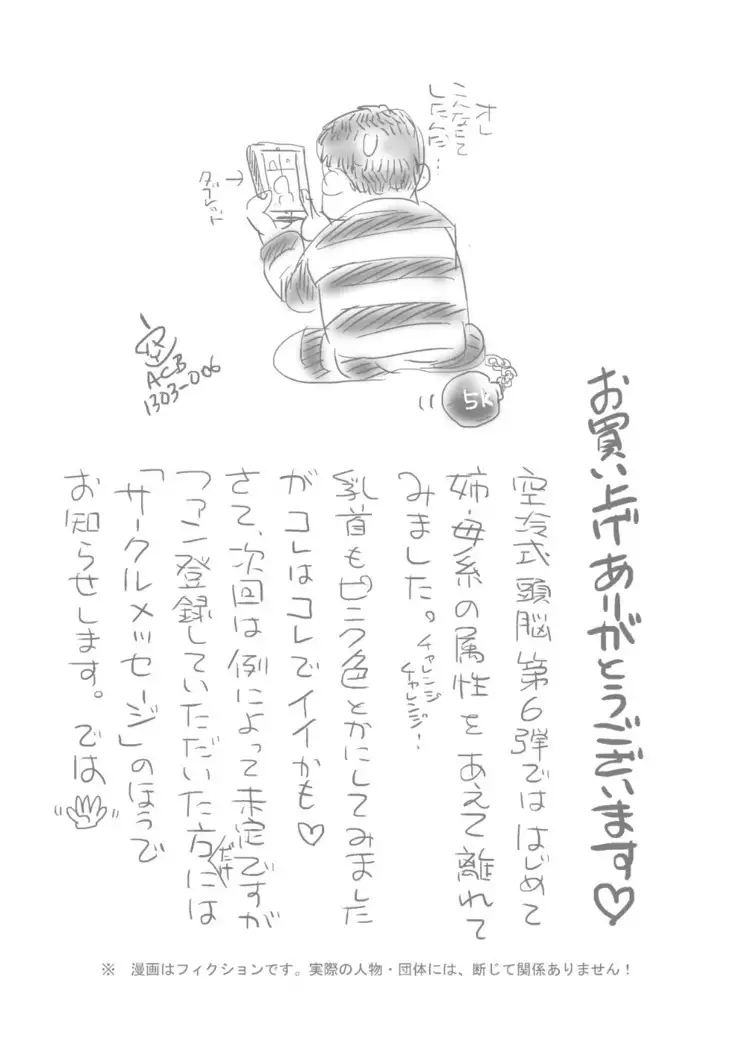 オレ
こんなことして
したんだ…
タブレット
→
空
ACB
1303-006
5k
お買い上げありがとうございます♡
空冷式頭脳第6弾でははじめて
姉・母系の属性をあえて離れて
みました。チャレンジチャレンジ!
乳首もピンク色とかにしてみました
がコレはコレでイイかも♡
さて、次回は例によって未定ですが
ファン登録していただいた方にだけは
「サークルメッセージ」のほうで
お知らせします。では
※ 漫画はフィクションです。実際の人物・団体には、断じて関係ありません!